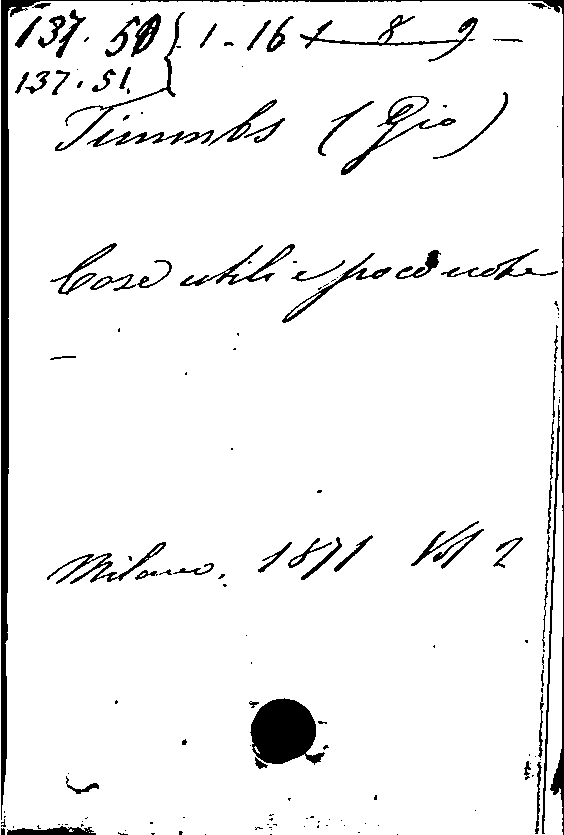 137. 50 } 1 - 16 + 8 9 —
137. 51.
Timmbs (Gio)
Cose utili e poco note
—
Milano. 1871 Vol 2